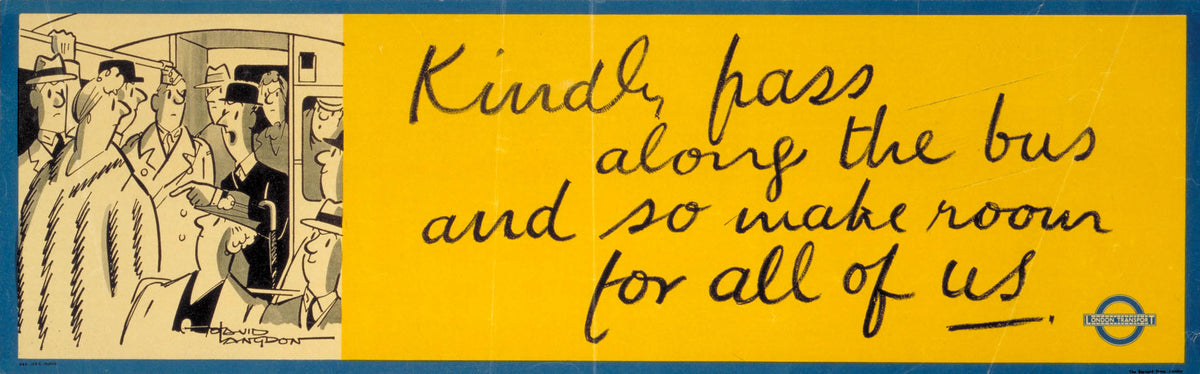 Kindly pass
along the bus
and so make room
for all of us.
DAVID
LANGDON
LONDON TRANSPORT